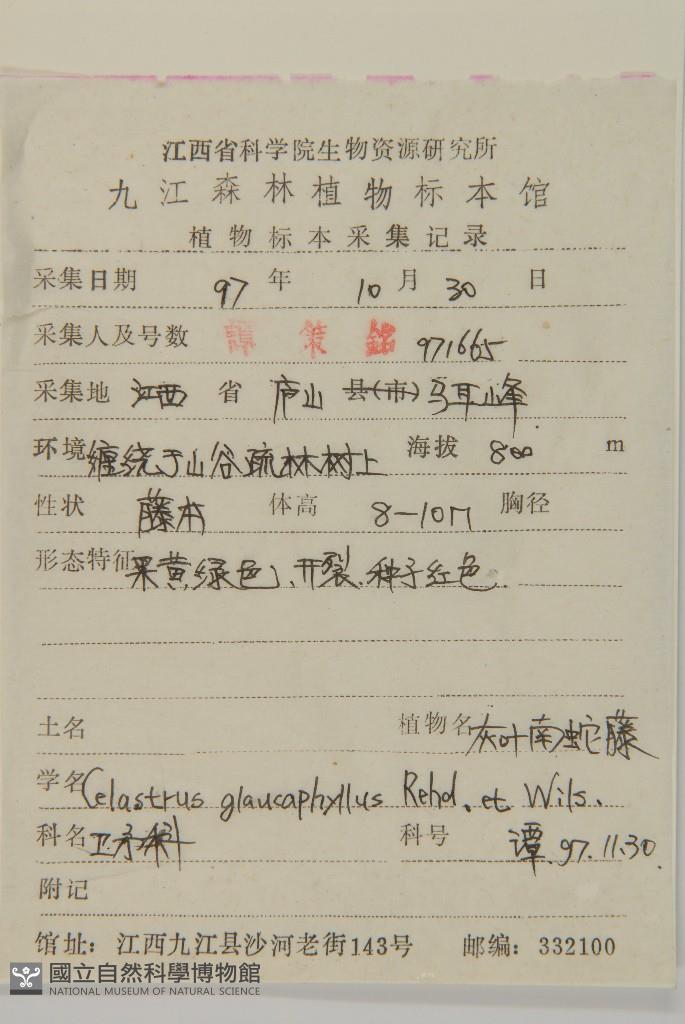 江西省科学院生物资源研究所
九江森林植物标本馆
植物标本采集记录
采集日期 97 年 10 月 30 日
采集人及号数 譚策銘 971665
采集地 江西 省 庐山 县(市) 马耳峰
环境 缠绕于山谷疏林树上 海拔 800 m
性状 藤本 体高 8-10m 胸径
形态特征 果黄绿色、开裂、种子红色.
土名 植物名 灰叶南蛇藤
学名 Celastrus glaucaphyllus Rehd. et Wils.
科名 卫矛科 科号 谭.97.11.30.
附记
馆址：江西九江县沙河老街143号 邮编：332100
國立自然科學博物館
NATIONAL MUSEUM OF NATURAL SCIENCE